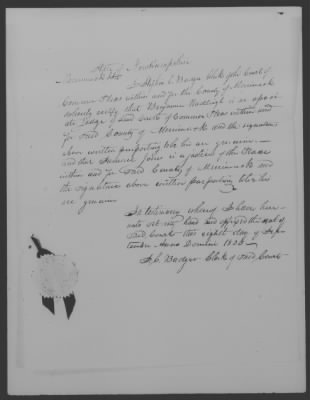 State of Newhampshire
Merrimack SS
I Stephen C. Badger Clerk of the Court of
Common Pleas within and for the County of Merrimack
certify that Benjamin Wadleigh is an
Judge of said Court of Common Pleas within and
for said County of Merrimack and the signature
above written purporting to be his are genuine
and that Samuel Jones is a Justice of the Peace
within and for said County of Merrimack and
the signature above written purporting to be his
are genuine
In testimony whereof I have here
unto set my hand and affixed the seal of
said Court this eight day of Sep
tember Anno Domini 1836
S. C. Badger Clerk of said Court